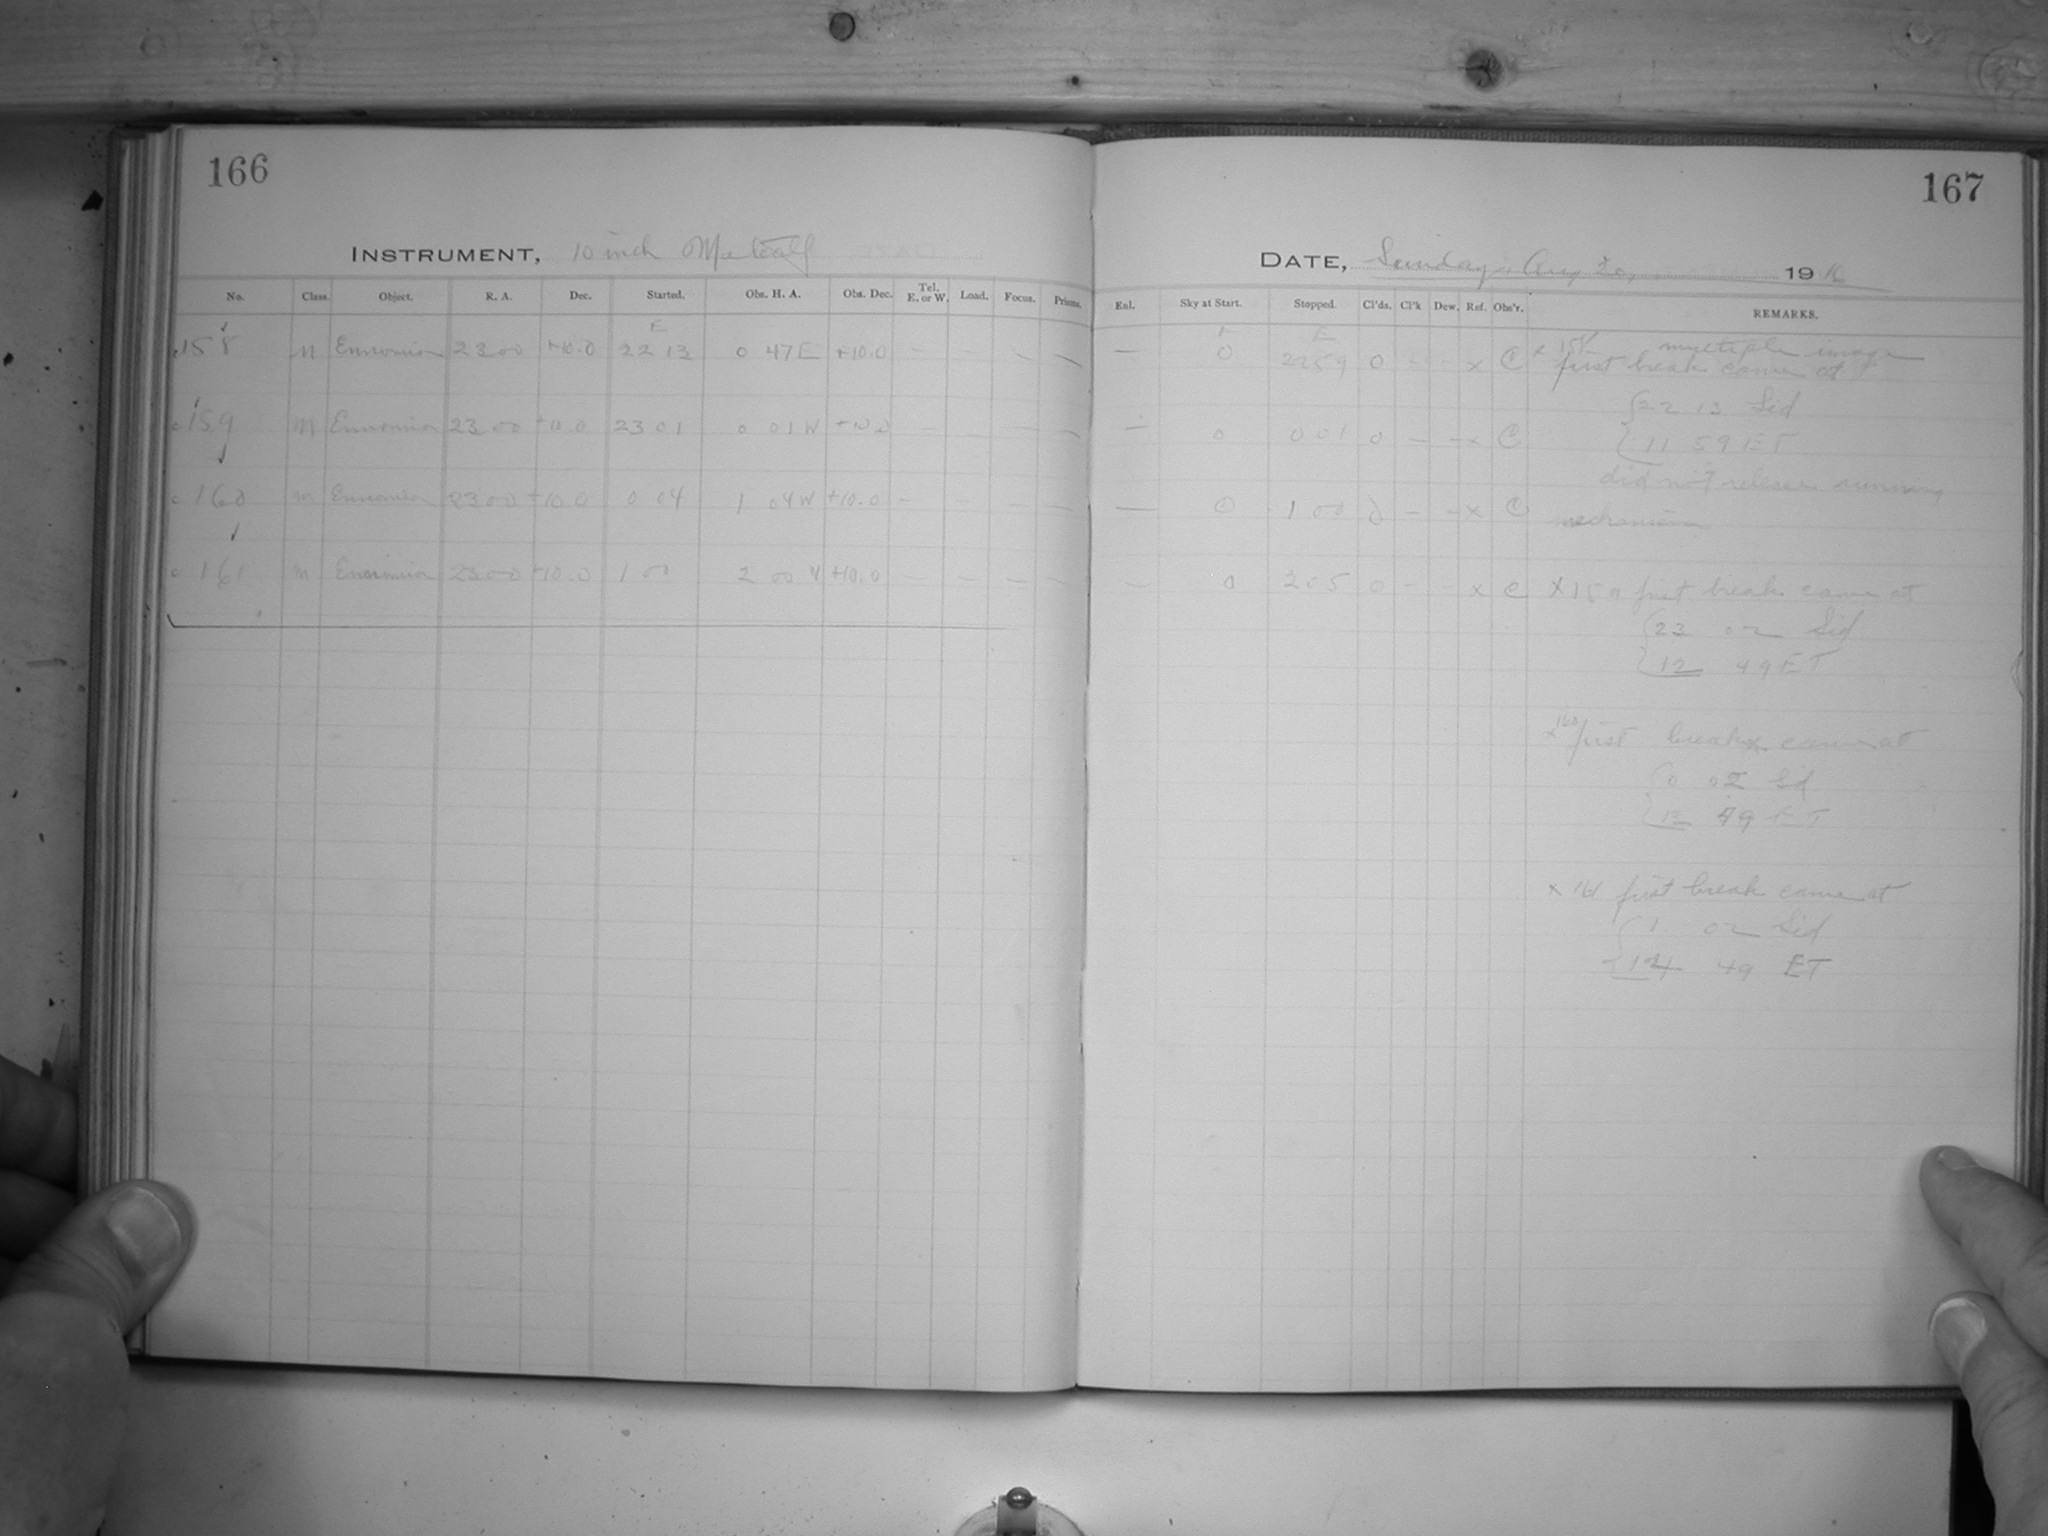 166
INSTRUMENT, 10 inch Metcalf
No. Class. Object. R. A. Dec. Started. Obs. H. A. Obs. Dec. Tel. E. or W. Load. Focus. Prisms.
158 M Eunomia 23 00 +10.0 22 13 0 47 E +10.0 – – – –
159 M Eunomia 23 00 +10.0 23 01 0 01 W +10.0 – – – –
160 M Eunomia 23 00 +10.0 0 04 1 04 W +10.0 – – – –
161 M Eunomia 23 00 +10.0 1 00 2 00 W +10.0 – – – –
167
DATE, Sunday, Aug 20, 1916
Enl. Sky at Start. Stopped. Cl'ds. Cl'k Dew. Ref. Obs'r. REMARKS.
— 0 22 59 0 – – x C
— 0 0 01 0 – – x C
— 0 1 00 0 – – x C
— 0 2 05 0 – – x C
x 158 multiple image
first break came at
22 13 Sid
11 59 ET
did not release running
mechanism
x 159 first break came at
23 02 Sid
12 49 ET
x 160 first break came at
0 02 Sid
13 49 ET
x 161 first break came at
1 02 Sid
14 49 ET